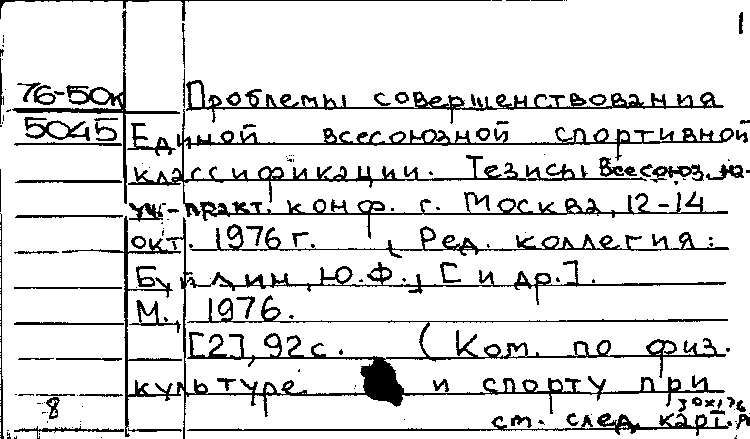 1
76-50к Проблемы совершенствования
5045 Единой всесоюзной спортивной
классификации. Тезисы Всесоюз. на-
уч.-практ. конф. г. Москва, 12-14
окт. 1976 г. Ред. коллегия:
Буйлин, Ю.Ф., [и др.].
М., 1976.
[2], 92 с. (Ком. по физ.
культуре и спорту при
8 ст. след. карт.